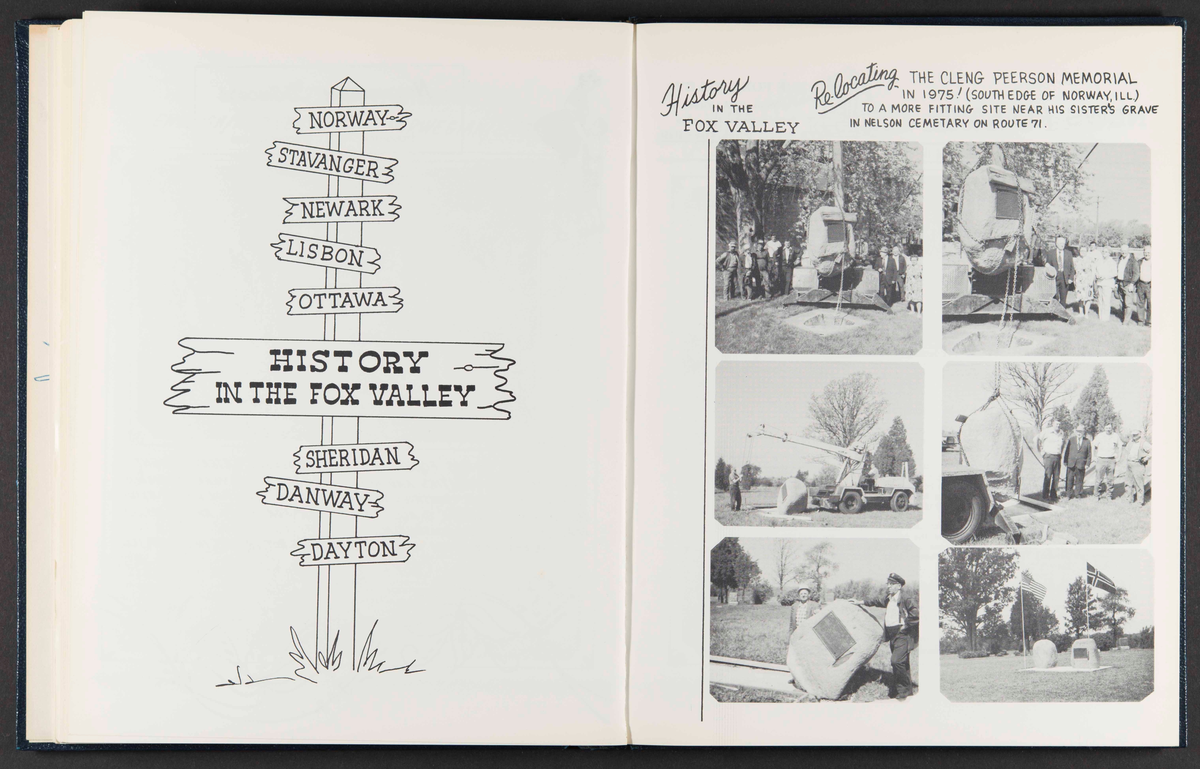 NORWAY
STAVANGER
NEWARK
LISBON
OTTAWA
HISTORY
IN THE FOX VALLEY
SHERIDAN
DANWAY
DAYTON
History
IN THE
FOX VALLEY
Relocating THE CLENG PEERSON MEMORIAL
IN 1975! (SOUTH EDGE OF NORWAY, ILL)
TO A MORE FITTING SITE NEAR HIS SISTER'S GRAVE
IN NELSON CEMETARY ON ROUTE 71.